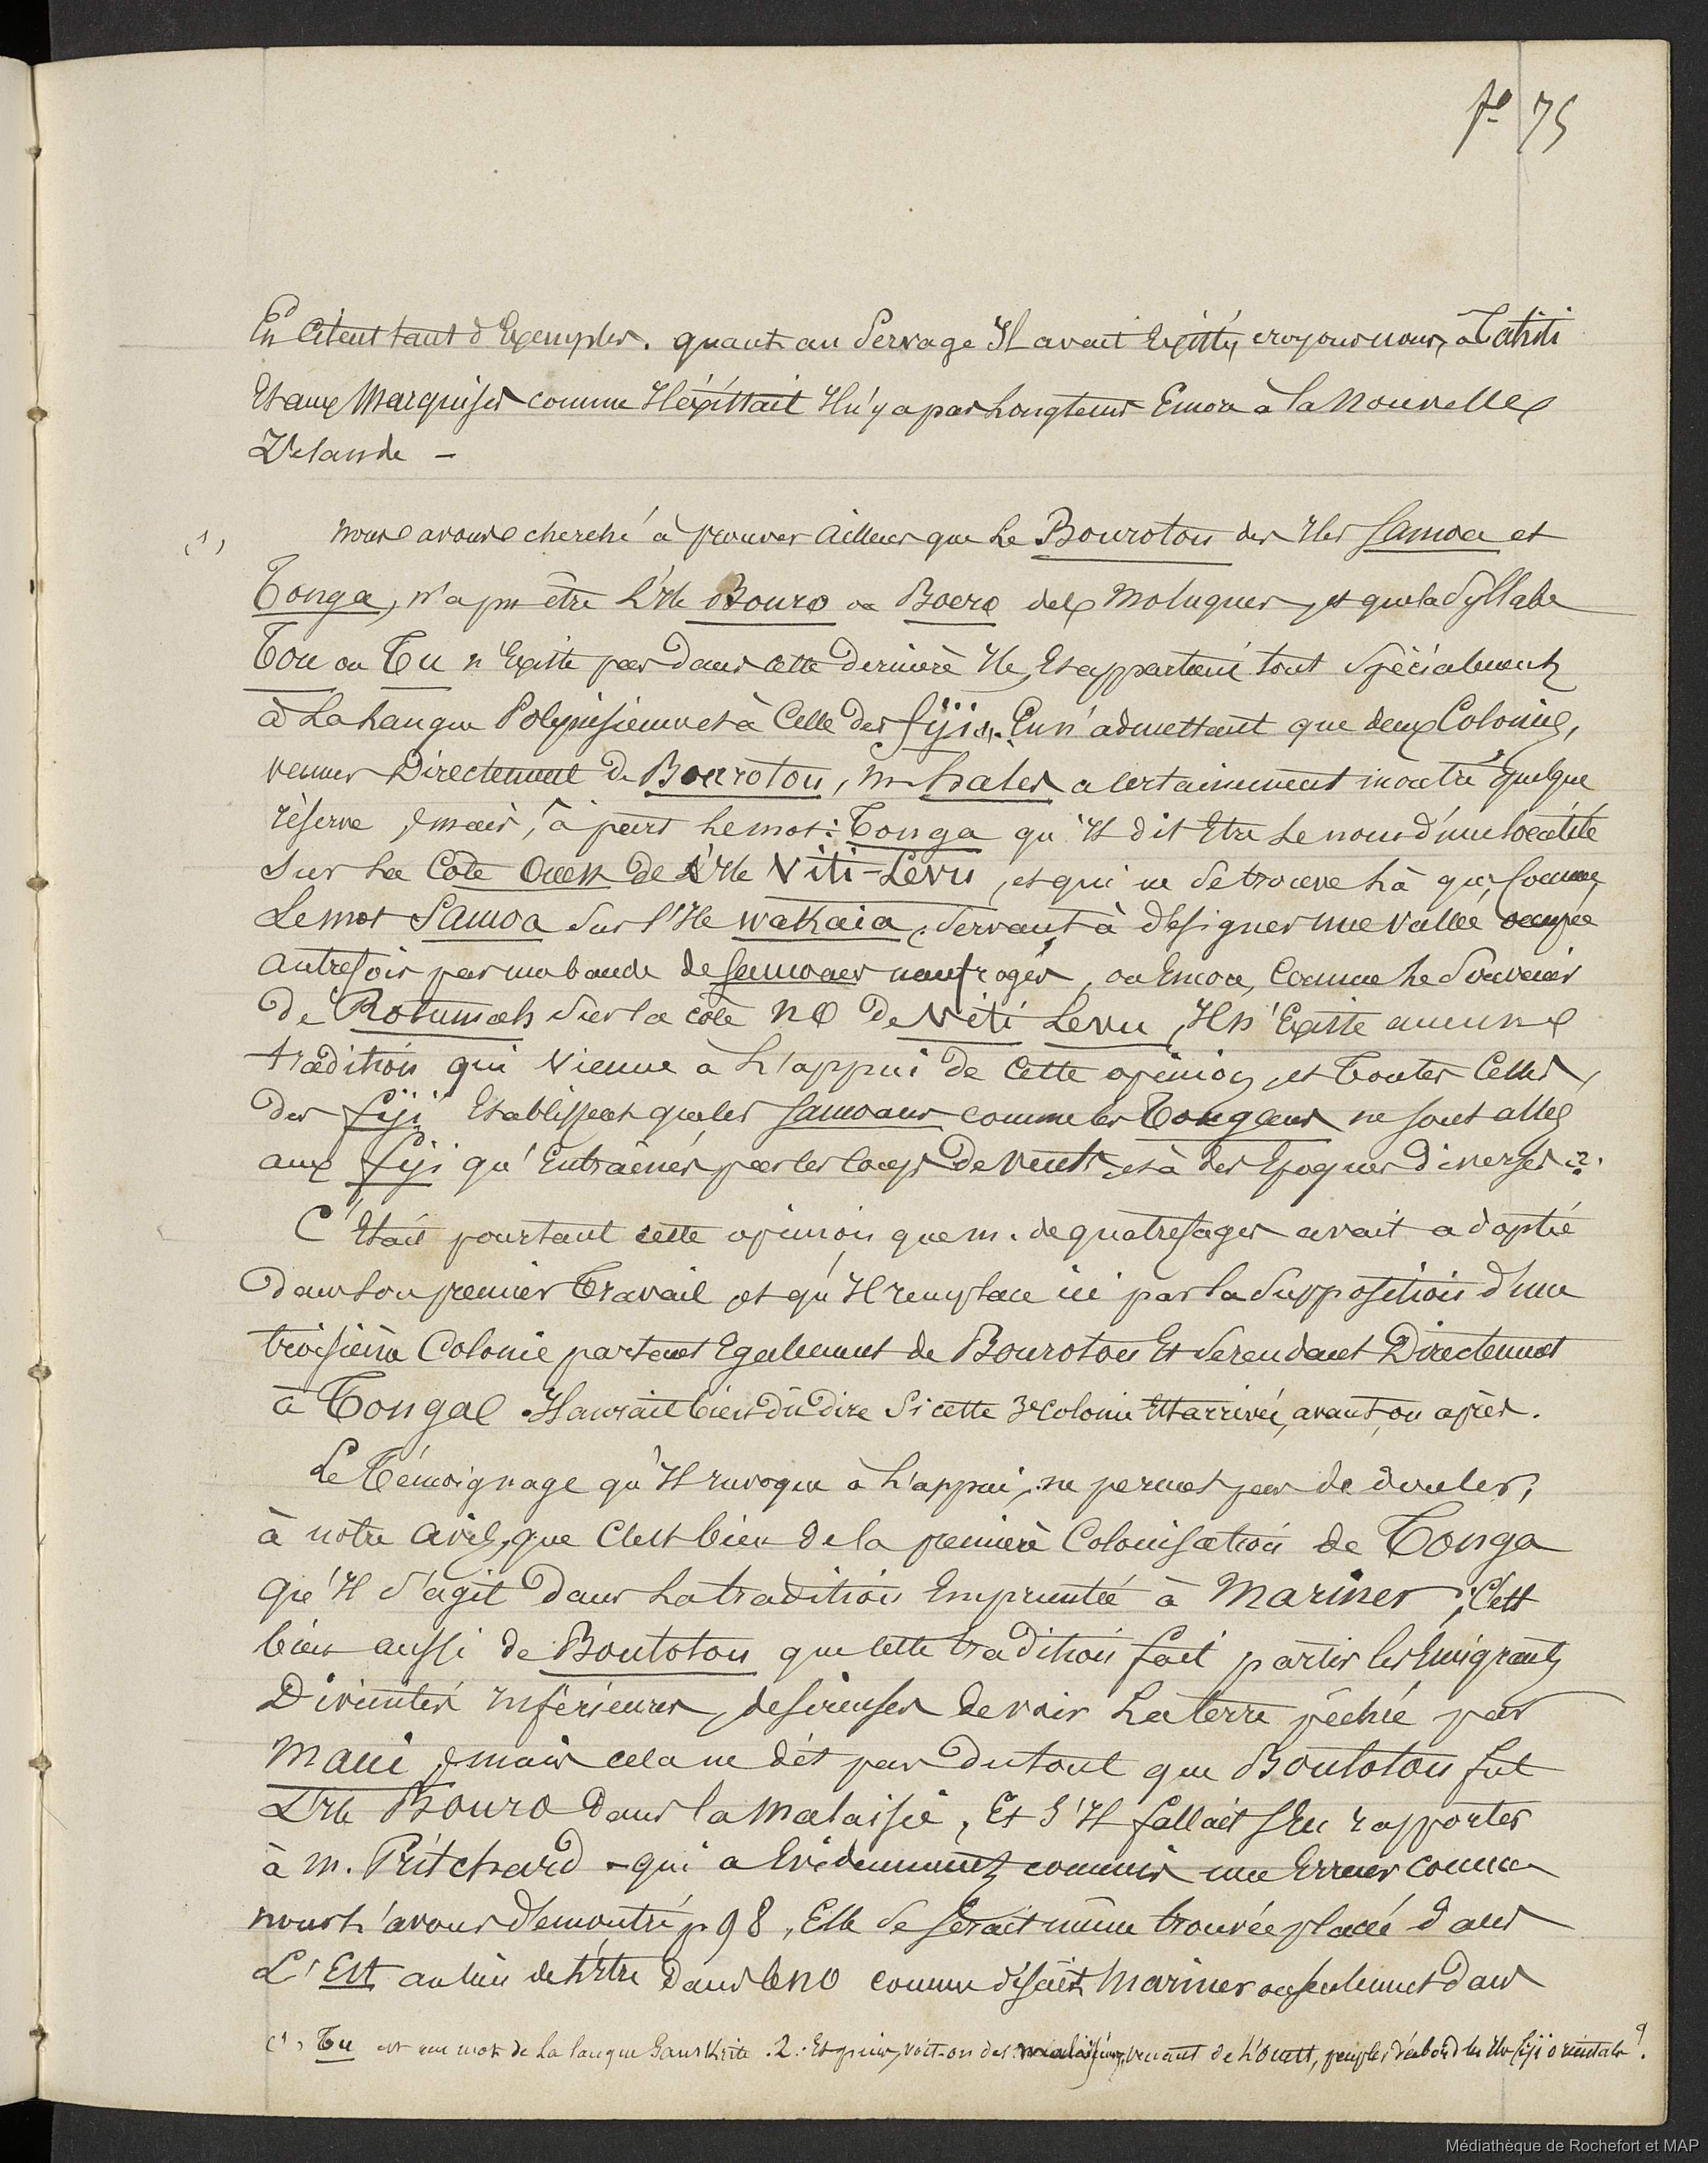 fo 75
En citent tant d'Exemples. quant au Servage Il avait Existé, croyons nous, à Tahiti
Et aux Marquises comme Il éxistait Il n'y a pas longtems Encor à la Nouvelle
Zélande -
(1) Nous avons cherché à prouver ailleurs que le Bourotou des Iles Samoa et
Tonga, n'a pu être L'Ile Bouro ou Boero des Moluques, et que la Syllabe
Tou ou Tu n'Existe pas dans cette dernière Ile, Et appartient tout Spécialement
à La Langue Polynésienne et à Celle des fijis (1). En n'admettant que deux Colonies,
venues Directement de Bourotou, M. hales a certainement montré quelque
réserve, mais, à part le mot : Tonga qu'Il dit Etre le nom d'une localité
Sur la Côte Ouest de L'Ile Viti-Levu, et qui ne se trouve là que, comme
Le mot Samoa Sur l'Ile Wakaia, Servant à désigner une vallée occupée
autrefois par une bande de Samoans naufragés, ou Encor, Comme le Souvenir
de Rotumah Sur la côte NO de Viti Levu, Il n'Existe aucune
tradition qui Vienne à L'appui de Cette opinion, et Toutes Celles
des fiji Etablissent que les Samoans comme les Tongans ne sont allés
aux fiji qu'Entraînés par les coups de vents, et à des Epoques diverses 2.
C'Etait pourtant cette opinion que M. de quatrefages avait adopté
dans Son premier Travail et qu'Il remplace ici par la Supposition d'une
troisième Colonie partant Egalement de Bourotou Et Se rendant Directement
à Tonga. Il aurait bien dû dire Si cette 3e colonie Est arrivée, avant, ou après.
Le Témoignage qu'Il invoque à L'appui, ne permet pas de douter,
à notre avis, que C'est bien de la première Colonisation de Tonga
qu'Il s'agit dans La tradition Empruntée à Mariner ; C'est
bien aussi de Boulotou que cette tradition fait partir les Emigrants
Divinités inférieures, desireuses de voir La terre pêchée par
Maui, mais cela ne dit pas du tout que Boulotou fut
L'Ile Bouro dans la Malaisie, Et S'Il fallait S'En rapporter
à M. Pritchard - qui a Evidemment commis une Erreur comme
nous L'avons démontré p. 98, Elle Se Serait même trouvée placée dans
L'Est au lieu de L'être dans le NO comme disait Mariner ou seulement dans
(1) Tu est un mot de La langue Sanskrite. 2. Et puis, voit-on des malaisiens, venant de L'ouest, peupler d'abord les Iles fiji orientales ?
Médiathèque de Rochefort et MAP